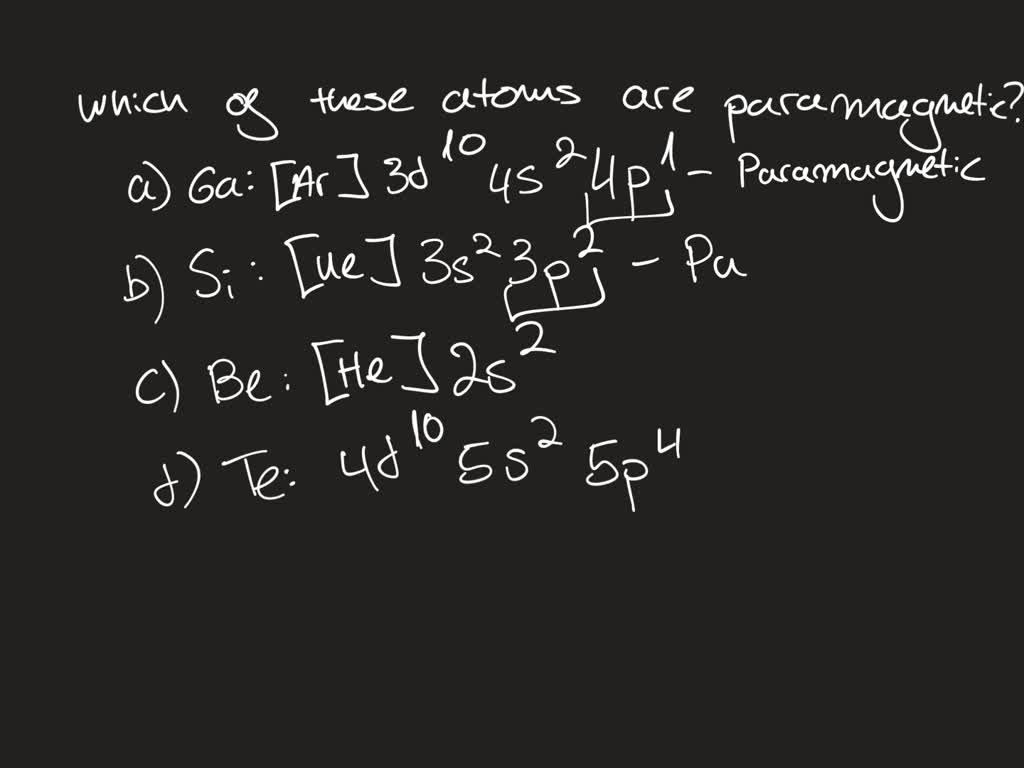 which of these atoms are paramagnetic?
a) Ga: [Ar] 3d¹⁰ 4s² 4p¹ - Paramagnetic
b) Si: [Ne] 3s² 3p² - Pa
c) Be: [He] 2s²
d) Te: 4d¹⁰ 5s² 5p⁴